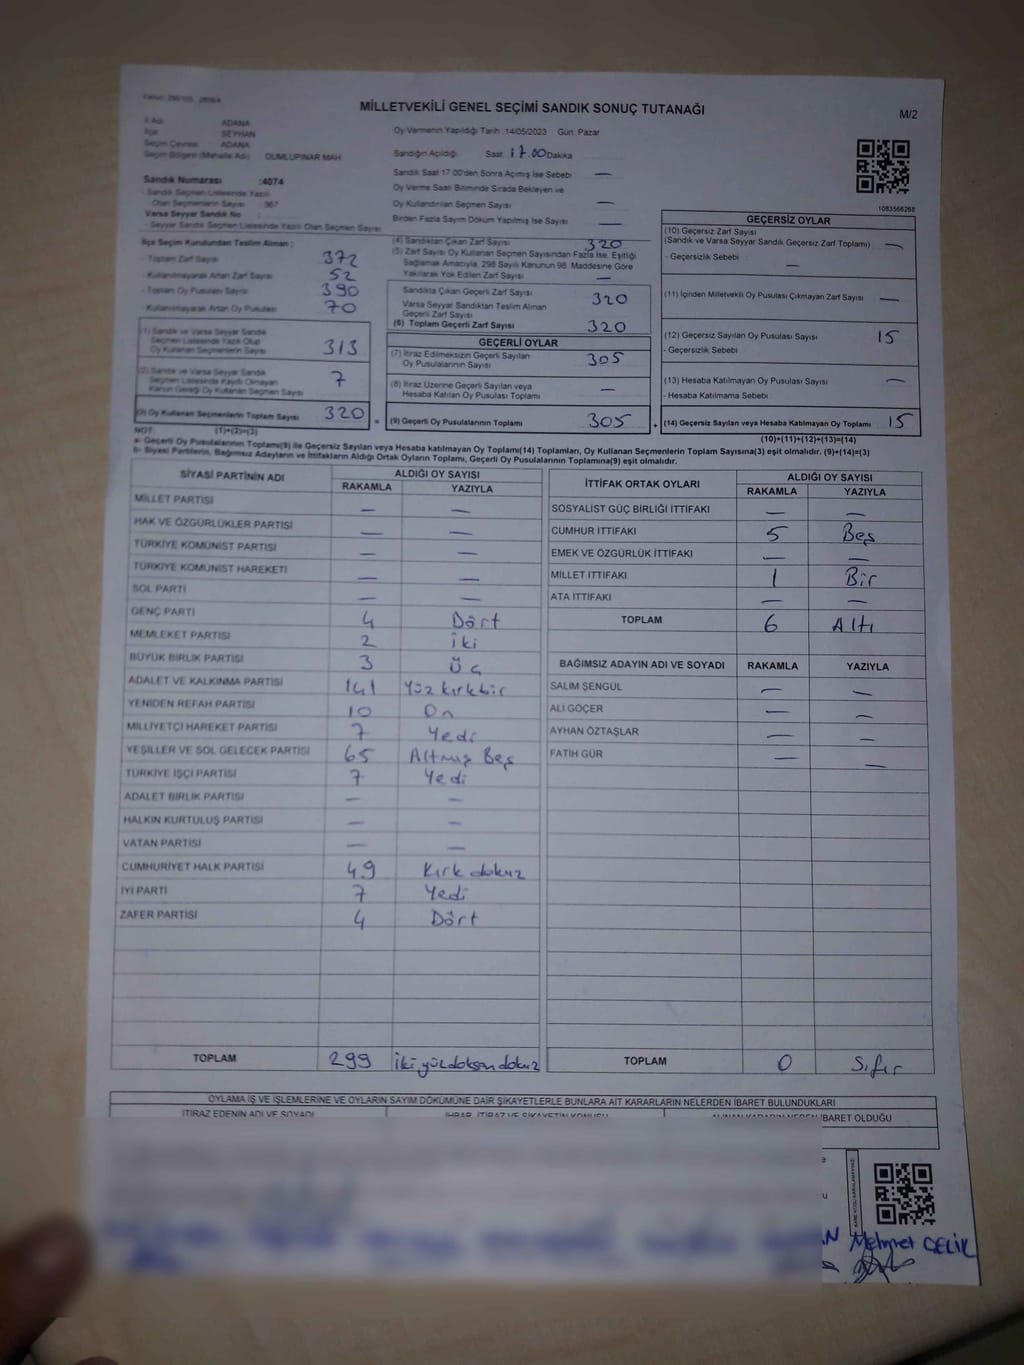 MİLLETVEKİLİ GENEL SEÇİMİ SANDIK SONUÇ TUTANAĞI
M/2
İl Adı ADANA
İlçe SEYHAN
Seçim Çevresi ADANA
Seçim Bölgesi (Mahalle Adı) DUMLUPINAR MAH
Oy Vermenin Yapıldığı Tarih :14/05/2023 Gün: Pazar
Sandığın Açıldığı Saat 17.00 Dakika
Sandık Saat 17:00'den Sonra Açımış İse Sebebi —
Oy Verme Saati Bitiminde Sırada Bekleyen ve
Oy Kullandırılan Seçmen Sayısı —
Birden Fazla Sayım Döküm Yapılmış İse Sayısı —
Sandık Numarası :4074
Sandık Seçmen Listesinde Yazılı
Olan Seçmenlerin Sayısı 367
Varsa Seyyar Sandık No
- Seyyar Sandık Seçmen Listesinde Yazılı Olan Seçmen Sayısı
1083566268
İlçe Seçim Kurulundan Teslim Alınan ;
- Toplam Zarf Sayısı 372
- Kullanılmayarak Artan Zarf Sayısı 52
- Toplam Oy Pusulası Sayısı 390
Kullanılmayarak Artan Oy Pusulası 70
(1) Sandık ve Varsa Seyyar Sandık
Seçmen Listesinde Yazılı Olup
Oy Kullanan Seçmenlerin Sayısı 313
(2) Sandık ve Varsa Seyyar Sandık
Seçmen Listesinde Kaydı Olmayan
Kanun Gereği Oy Kullanan Seçmen Sayısı 7
(3) Oy Kullanan Seçmenlerin Toplam Sayısı 320
(4) Sandıktan Çıkan Zarf Sayısı 320
(5) Zarf Sayısı Oy Kullanan Seçmen Sayısından Fazla İse, Eşitliği
Sağlamak Amacıyla, 298 Sayılı Kanunun 98. Maddesine Göre
Yakılarak Yok Edilen Zarf Sayısı —
Sandıkta Çıkan Geçerli Zarf Sayısı 320
Varsa Seyyar Sandıktan Teslim Alınan
Geçerli Zarf Sayısı
(6) Toplam Geçerli Zarf Sayısı 320
GEÇERLİ OYLAR
(7) İtiraz Edilmeksizin Geçerli Sayılan
Oy Pusulalarının Sayısı 305
(8) İtiraz Üzerine Geçerli Sayılan veya
Hesaba Katılan Oy Pusulası Toplamı —
= (9) Geçerli Oy Pusulalarının Toplamı 305
GEÇERSİZ OYLAR
(10) Geçersiz Zarf Sayısı
(Sandık ve Varsa Seyyar Sandık Geçersiz Zarf Toplamı) —
- Geçersizlik Sebebi —
(11) İçinden Milletvekili Oy Pusulası Çıkmayan Zarf Sayısı —
(12) Geçersiz Sayılan Oy Pusulası Sayısı 15
- Geçersizlik Sebebi
(13) Hesaba Katılmayan Oy Pusulası Sayısı —
- Hesaba Katılmama Sebebi
+ (14) Geçersiz Sayılan veya Hesaba Katılmayan Oy Toplamı 15
NOT: (1)+(2)=(3)
(10)+(11)+(12)+(13)=(14)
a- Geçerli Oy Pusulalarının Toplamı(9) ile Geçersiz Sayılan veya Hesaba katılmayan Oy Toplam(14) Toplamları, Oy Kullanan Seçmenlerin Toplam Sayısına(3) eşit olmalıdır. (9)+(14)=(3)
b- Siyasi Partilerin, Bağımsız Adayların ve İttifakların Aldığı Ortak Oyların Toplamı, Geçerli Oy Pusulalarının Toplamına(9) eşit olmalıdır.
SİYASİ PARTİNİN ADI ALDIĞI OY SAYISI
RAKAMLA YAZIYLA
MİLLET PARTİSİ — —
HAK VE ÖZGÜRLÜKLER PARTİSİ — —
TÜRKİYE KOMÜNİST PARTİSİ — —
TÜRKİYE KOMÜNİST HAREKETİ — —
SOL PARTİ — —
GENÇ PARTİ 4 Dört
MEMLEKET PARTİSİ 2 İki
BÜYÜK BİRLİK PARTİSİ 3 Üç
ADALET VE KALKINMA PARTİSİ 141 Yüz kırkbir
YENİDEN REFAH PARTİSİ 10 On
MİLLİYETÇİ HAREKET PARTİSİ 7 Yedi
YEŞİLLER VE SOL GELECEK PARTİSİ 65 Altmış Beş
TÜRKİYE İŞÇİ PARTİSİ 7 Yedi
ADALET BİRLİK PARTİSİ — —
HALKIN KURTULUŞ PARTİSİ — —
VATAN PARTİSİ — —
CUMHURİYET HALK PARTİSİ 49 Kırk dokuz
İYİ PARTİ 7 Yedi
ZAFER PARTİSİ 4 Dört
TOPLAM 299 İki yüz doksan dokuz
İTTİFAK ORTAK OYLARI ALDIĞI OY SAYISI
RAKAMLA YAZIYLA
SOSYALİST GÜÇ BİRLİĞİ İTTİFAKI — —
CUMHUR İTTİFAKI 5 Beş
EMEK VE ÖZGÜRLÜK İTTİFAKI — —
MİLLET İTTİFAKI 1 Bir
ATA İTTİFAKI — —
TOPLAM 6 Altı
BAĞIMSIZ ADAYIN ADI VE SOYADI RAKAMLA YAZIYLA
SALİM ŞENGÜL — —
ALİ GÖÇER — —
AYHAN ÖZTAŞLAR — —
FATİH GÜR — —
TOPLAM 0 Sıfır
OYLAMA İŞ VE İŞLEMLERİNE VE OYLARIN SAYIM DÖKÜMÜNE DAİR ŞİKAYETLERLE BUNLARA AİT KARARLARIN NELERDEN İBARET BULUNDUKLARI
İTİRAZ EDENİN ADI VE SOYADI İHBAR, İTİRAZ VE ŞİKAYETİN KONUSU ALINAN KARARIN NEDEN İBARET OLDUĞU
Mehmet ÇELİK